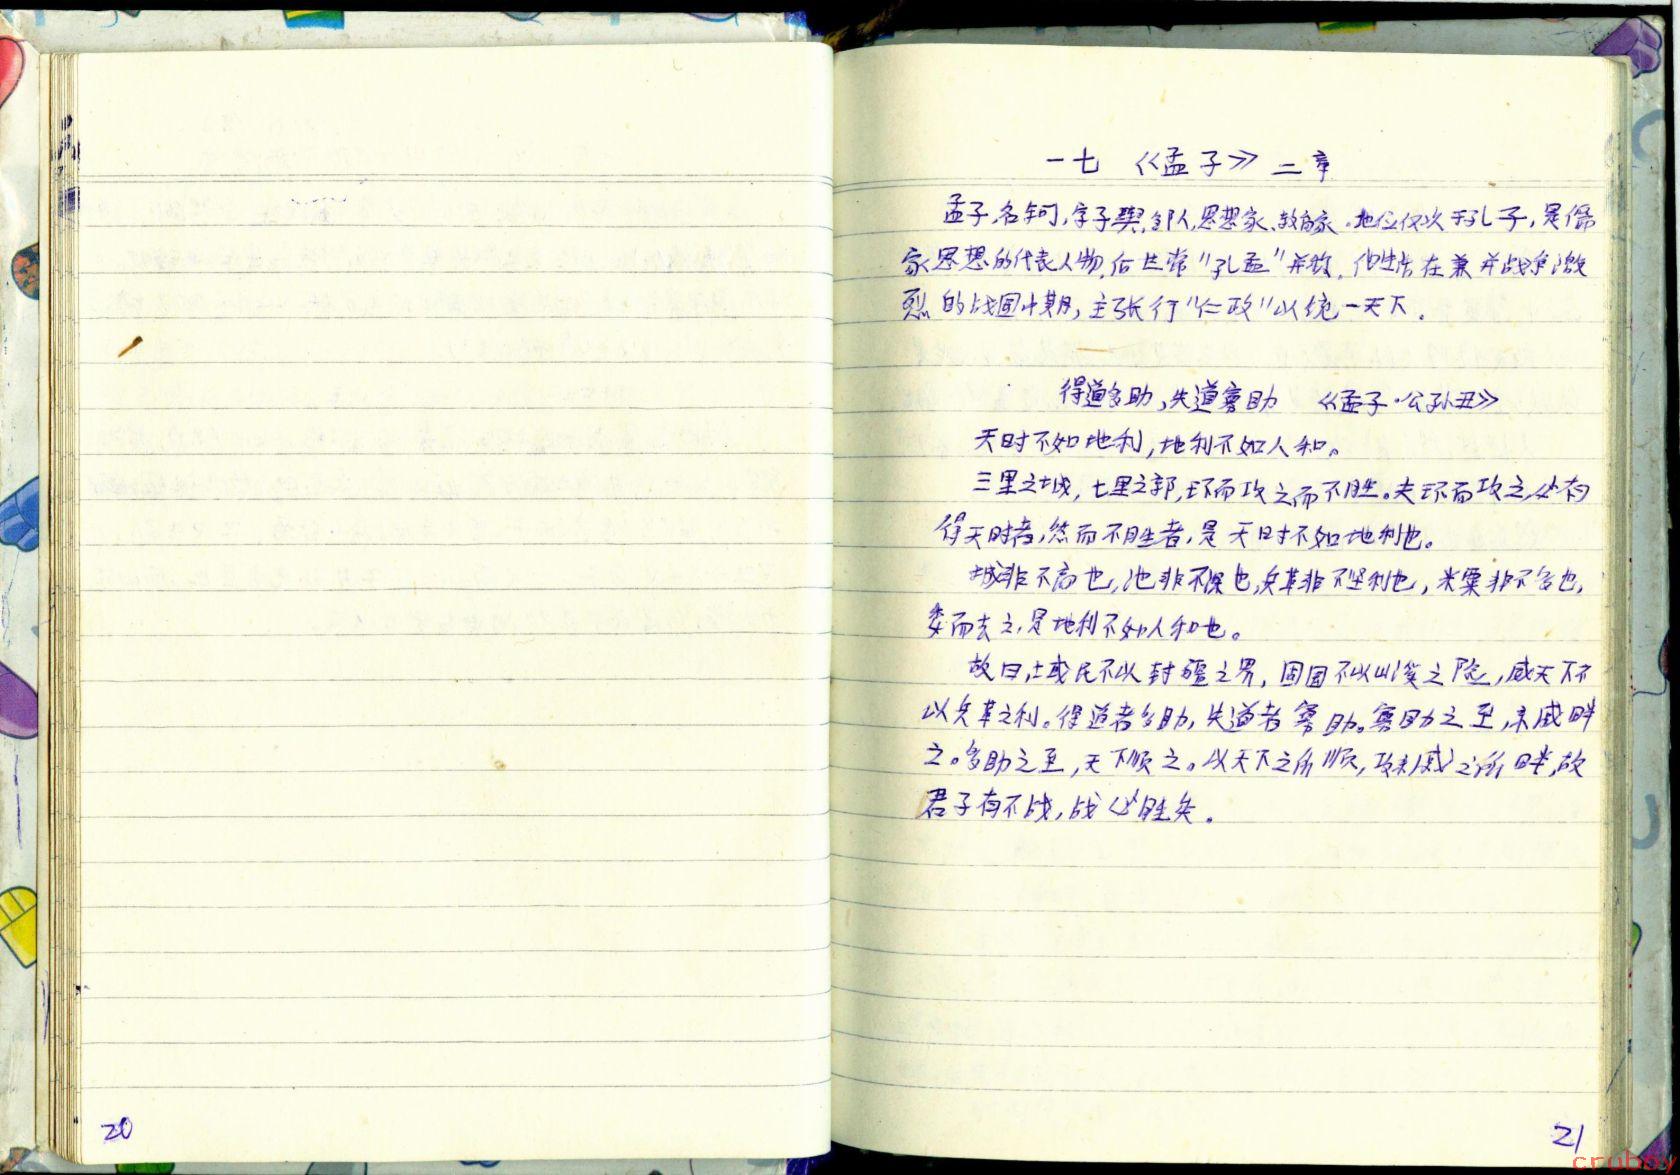 一七 《孟子》二章
孟子,名轲,字子舆,邹人,思想家、教育家。地位仅次于孔子,是儒
家思想的代表人物,后世常"孔孟"并称,他生活在兼并战争激
烈的战国时期,主张行"仁政"以统一天下.
得道多助,失道寡助 《孟子·公孙丑》
天时不如地利,地利不如人和。
三里之城,七里之郭,环而攻之而不胜。夫环而攻之,必有
得天时者,然而不胜者,是天时不如地利也。
城非不高也,池非不深也,兵革非不坚利也,米粟非不多也,
委而去之,是地利不如人和也。
故曰,域民不以封疆之界,固国不以山溪之险,威天下不
以兵革之利。得道者多助,失道者寡助。寡助之至,亲戚畔
之。多助之至,天下顺之。以天下之所顺,攻亲戚之所畔,故
君子有不战,战必胜矣.
20
21